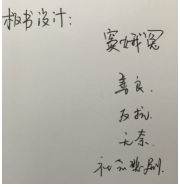 板书设计：
窦娥冤
善良
反抗
无奈
社会黑暗